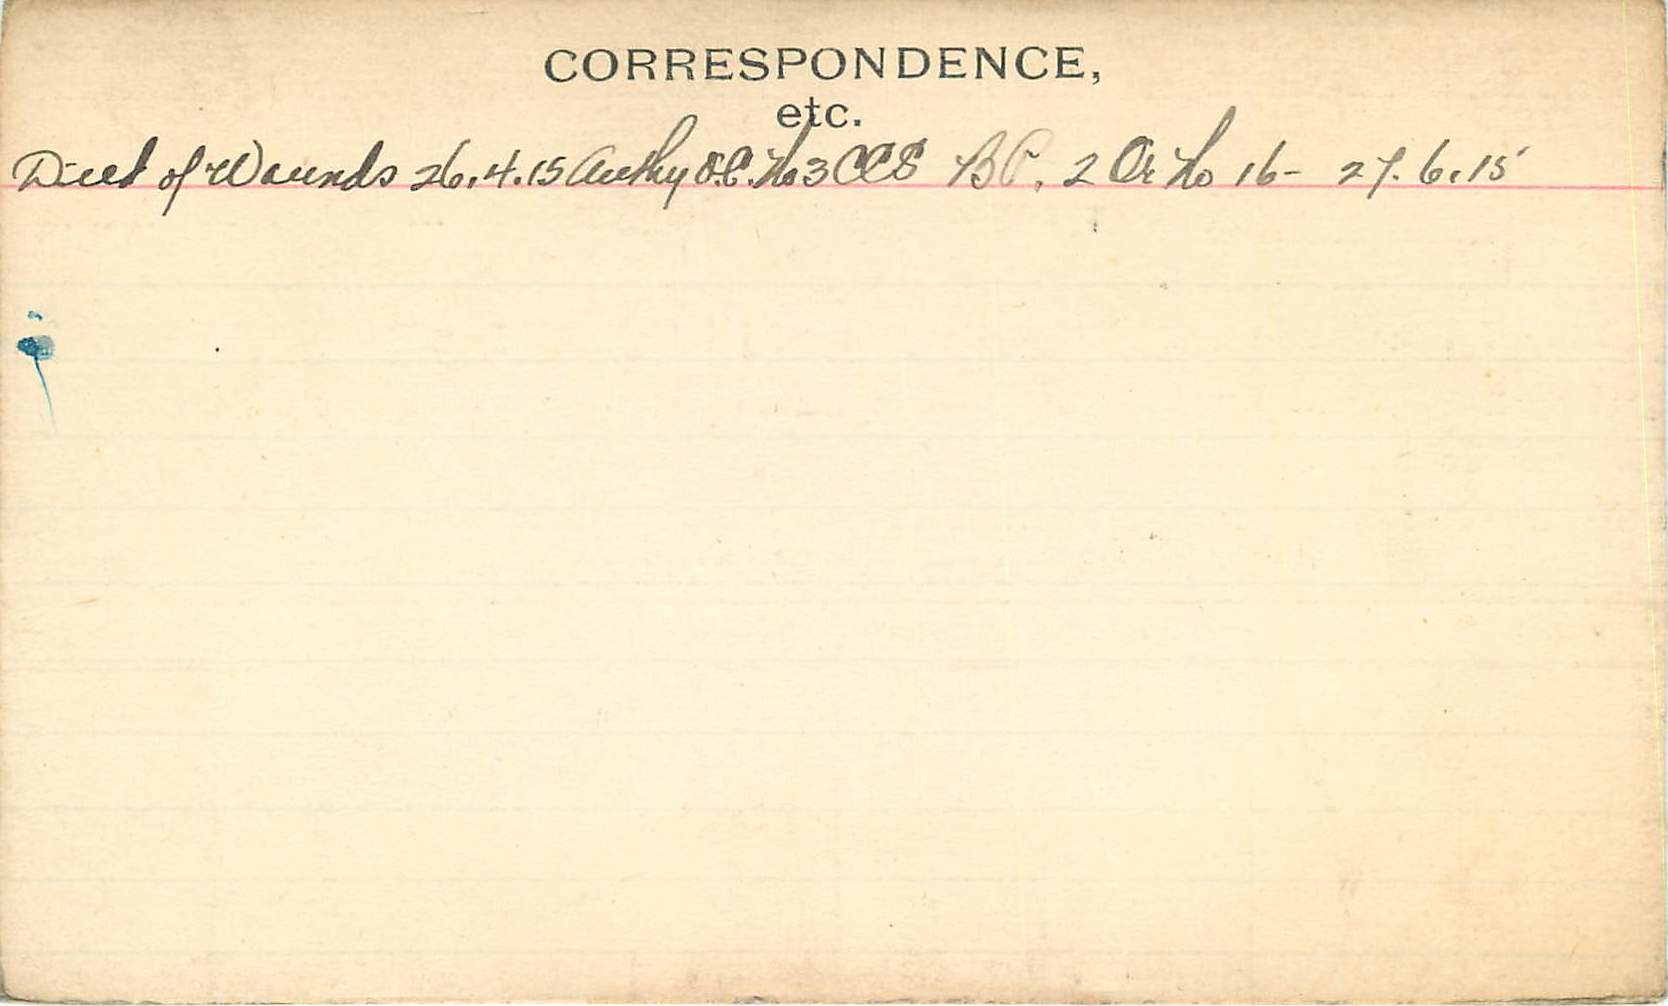 CORRESPONDENCE,
etc.
Died of Wounds 26.4.15 Authy O.C. No 3 CCS B.P. 2 Or No 16- 27.6.15